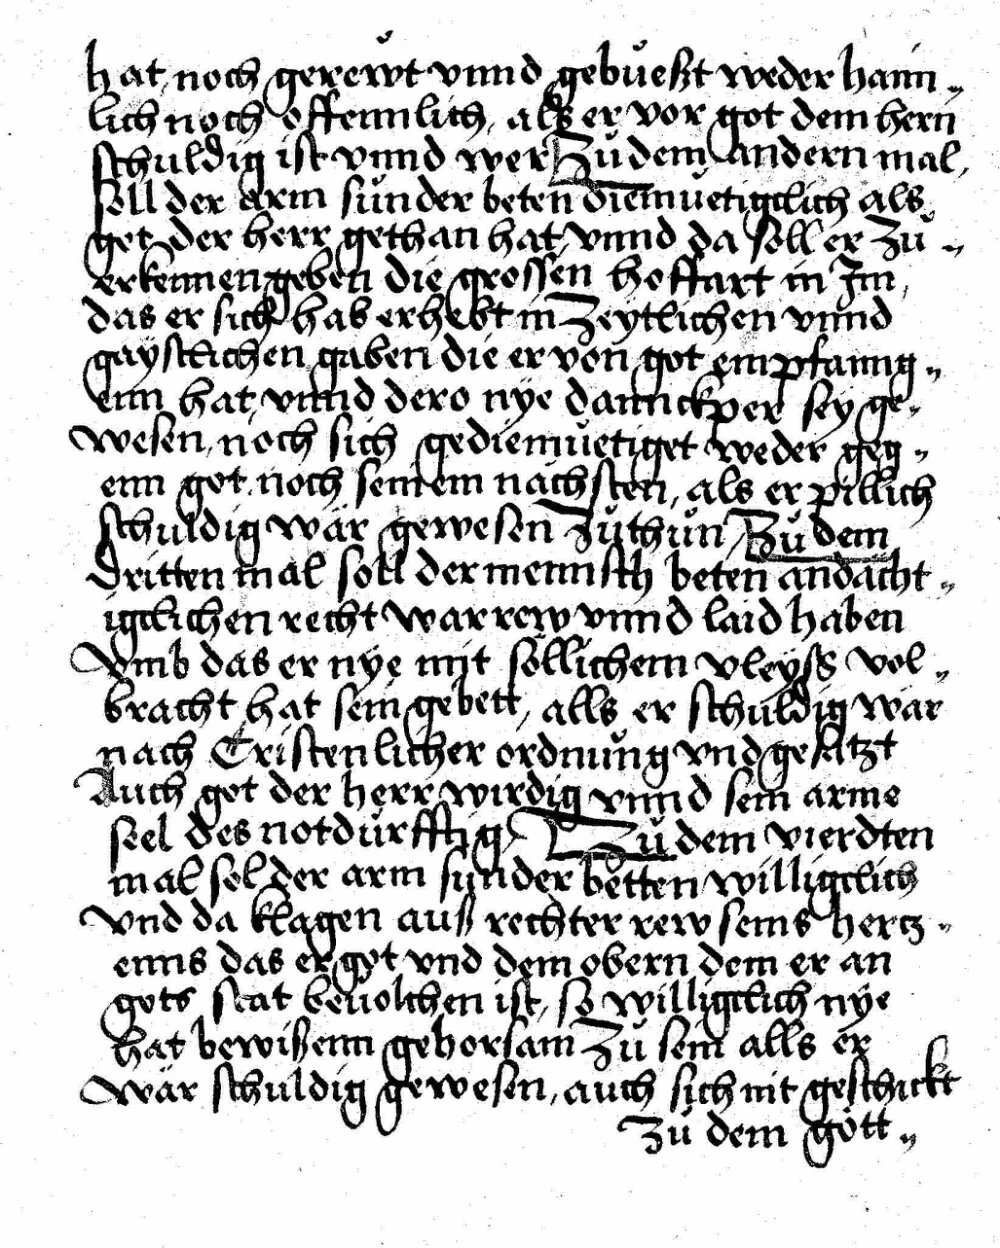 hat, noch gerewt vnnd gebueßt weder haim„
lich noch offennlich, alls er vor got dem hern
schuldig ist vnnd wer Zů dem andern mal,
soll der arm sünder beten diemuetigclich als
got der herr gethan hat, vnnd da soll er Zů„
erkennen geben die grossen hoffart in Im,
das er sich hab erhebt in Zeytlichen vnnd
gaystlichen gaben die er von got empfanng„
enn hat, vnnd dero nye dannckper sey ge„
wesen, noch sich gediemuetiget weder geg„
enn got noch seinem nächsten, als er pillich
schuldig wär gewesen Zůthůn Zů dem
dritten mal soll der mennsch beten andächt„
igclichen recht war rew vnnd laid haben
Vmb das er nye mit söllichem vleyss vol„
bracht hat sein gebett, alls er schuldig wär
nach Cristenlicher ordnung vnd gesatzt
Auch got der herr wirdig vnnd sein arme
seel des notdürfftig Zů dem vierdten
mal sol der arm sunder betten willigclich
vnd da klagen auß rechter rew seins hertz„
enns das er got vnd dem obern dem er an
gots stat beuolchen ist, so willigclich nye
hat bewißenn gehorsam Zů sein alls er
wär schuldig gewesen, auch sich nit geschickt
Zů dem gött„